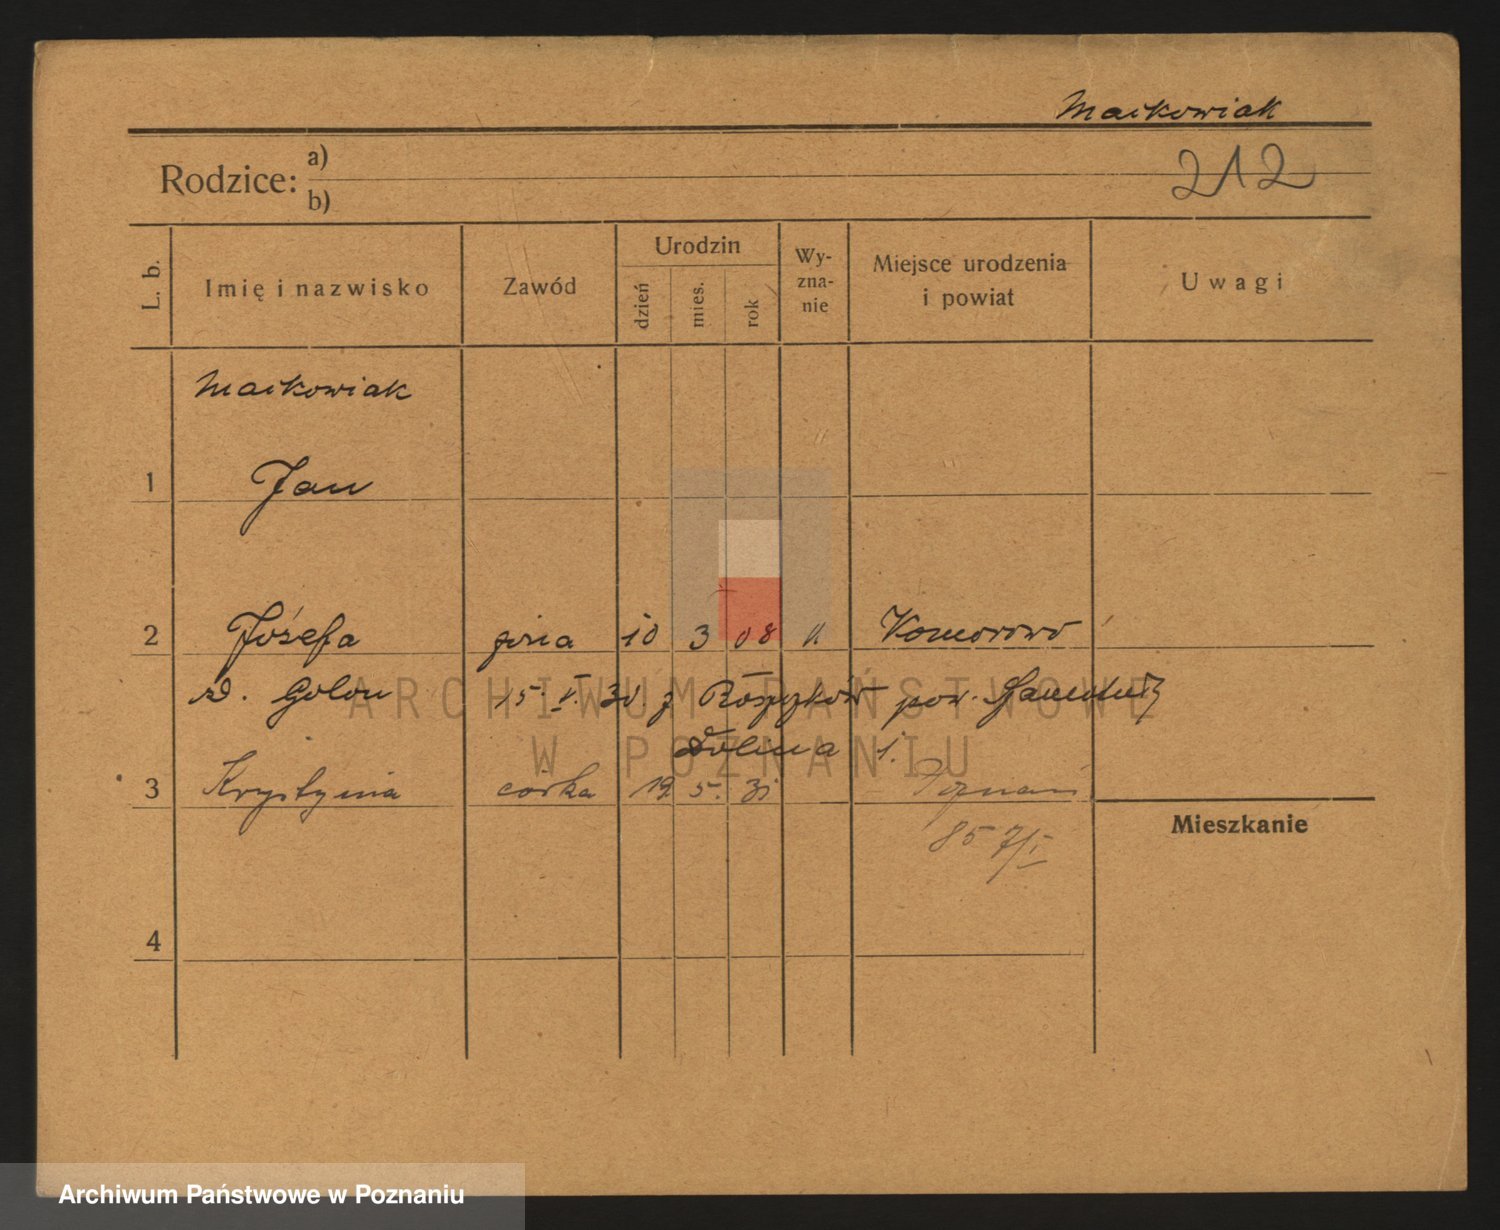 Maćkowiak
Rodzice: a)
b)
212
L. b.
Imię i nazwisko
Zawód
Urodzin
dzień
mies.
rok
Wy-
zna-
nie
Miejsce urodzenia
i powiat
Uwagi
Maćkowiak
1 Jan
2 Józefa żona 10 3 08 Komorowo
z d. Golon 15. V. 30. z pow. Szamotuły
Dolina 1.
3 Krystyna córka 19. 5. 31 Poznań
857/I
Mieszkanie
4
ARCHIWUM PAŃSTWOWE
W POZNANIU
Archiwum Państwowe w Poznaniu